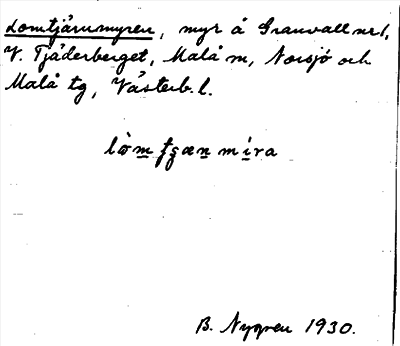 Lomtjärnmyren, myr å Granvall nr 1,
V. Tjäderberget, Malå m, Norsjö och
Malå tg, Västerb. l.
lòm̲ ʃʂæn̲ mi̲ra
B. Nygren 1930.